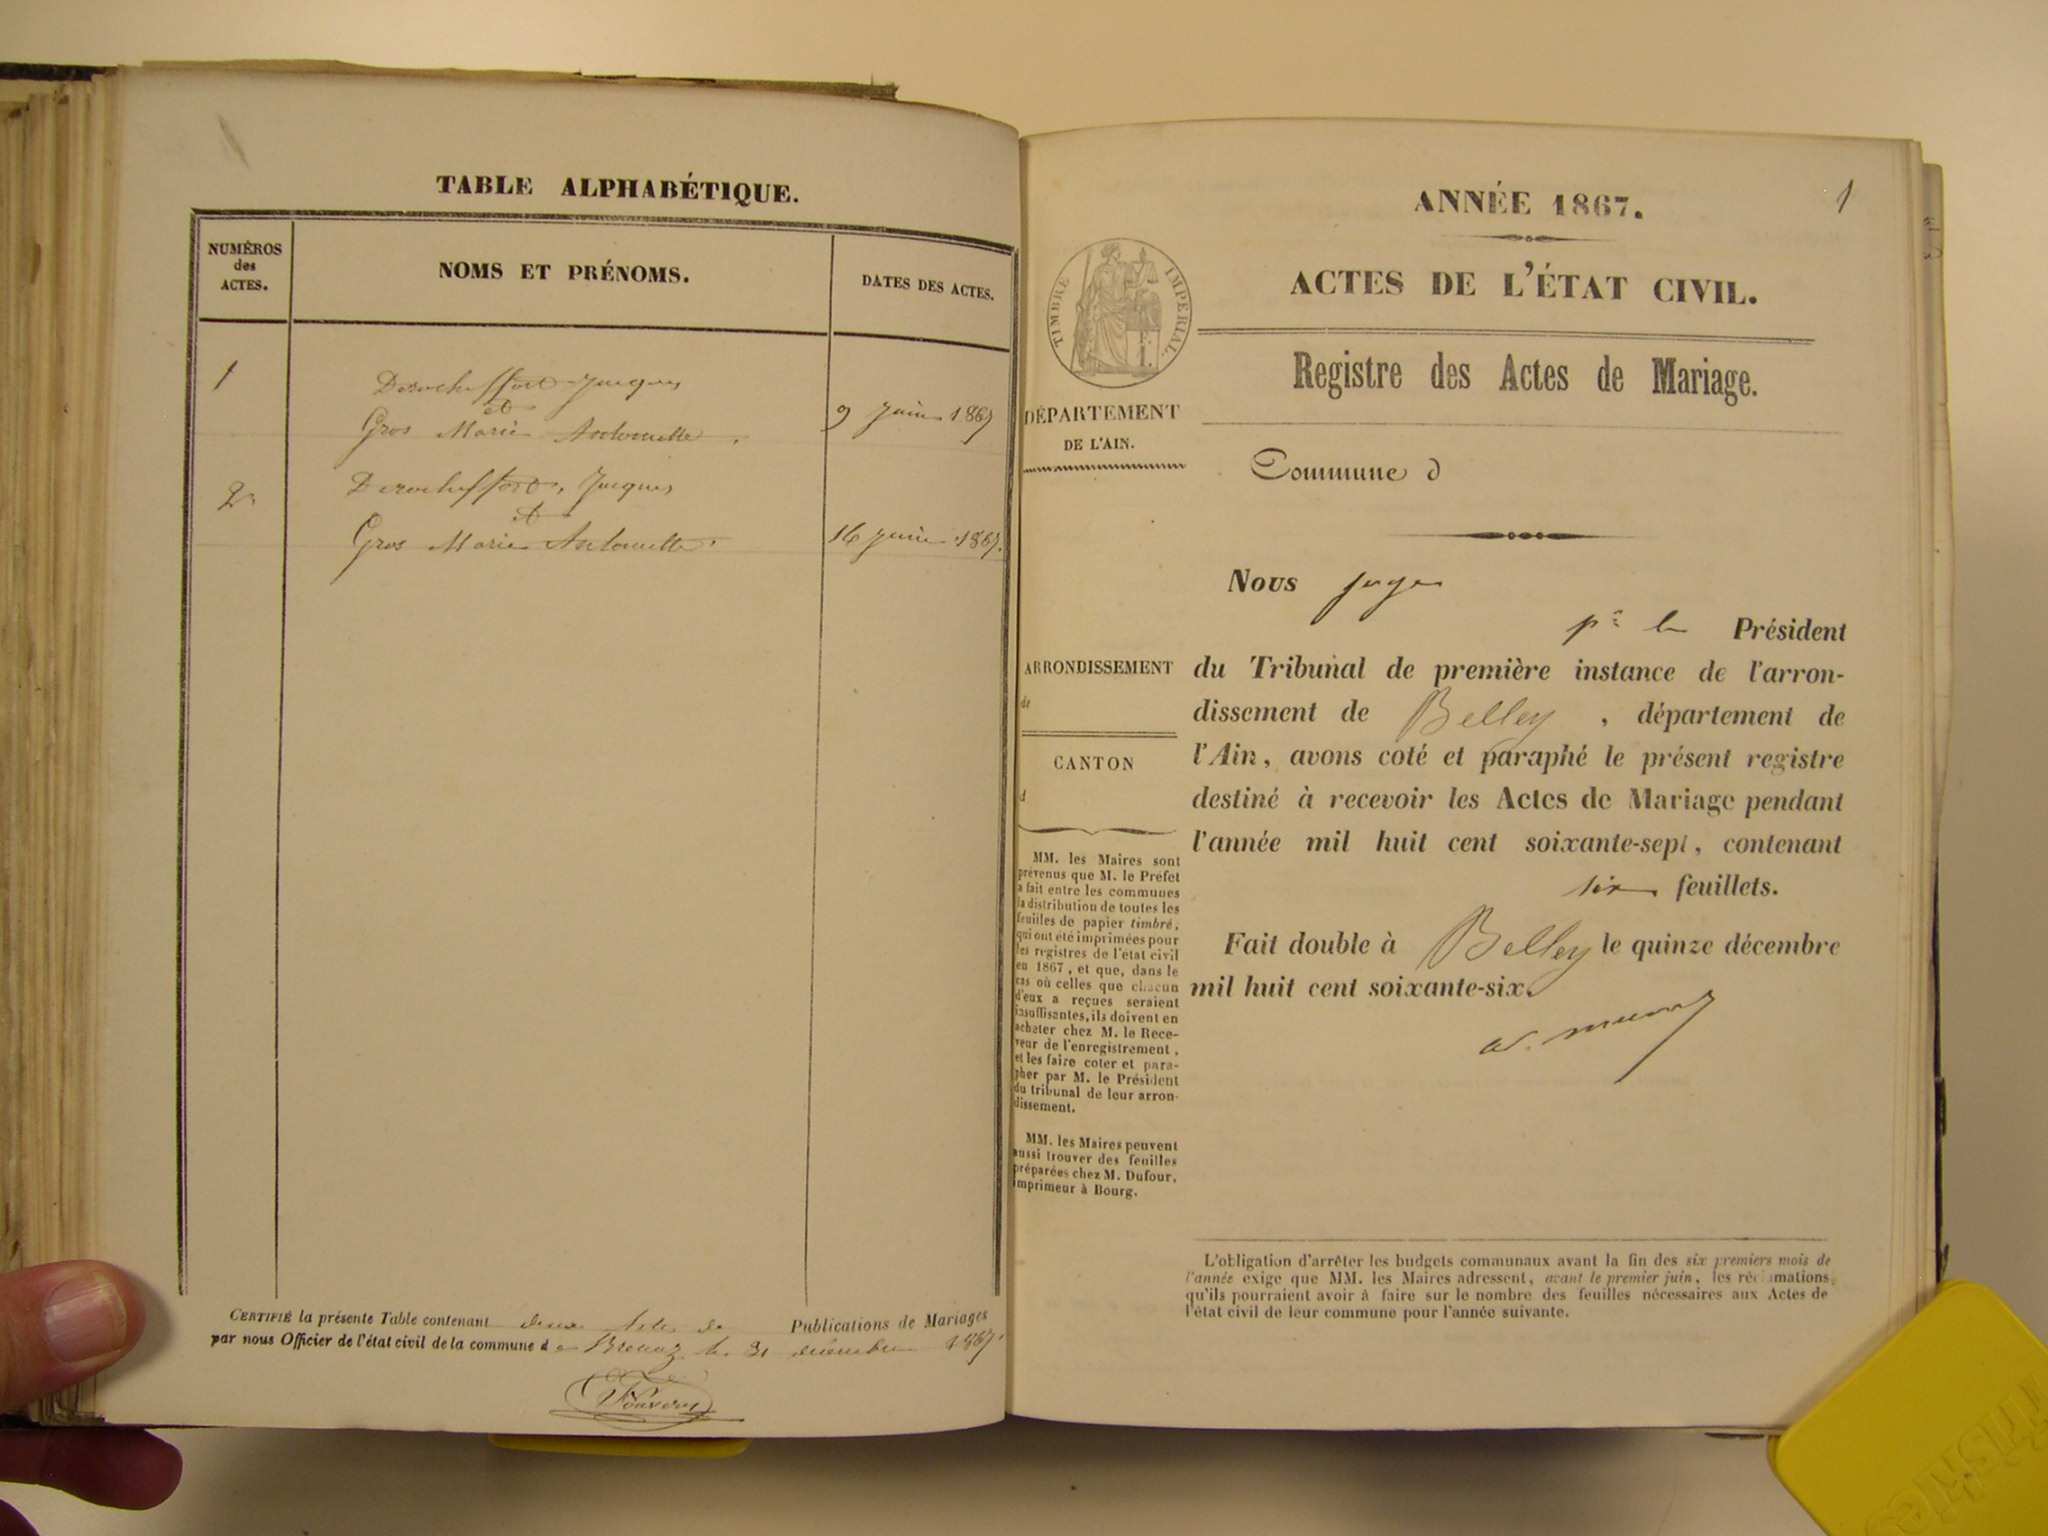 TABLE ALPHABÉTIQUE.
NUMÉROS
des
ACTES.
NOMS ET PRÉNOMS.
DATES DES ACTES.
1
Derocheffort Jacques
et
Gros Marie Antoinette
9 juin 1867
2
Derocheffort, Jacques
et
Gros Marie Antoinette
16 juin 1867.
CERTIFIÉ la présente Table contenant deux Actes de Publications de Mariages
par nous Officier de l'état civil de la commune de le 31 décembre 1867
1
ANNÉE 1867.
ACTES DE L'ÉTAT CIVIL.
TIMBRE IMPÉRIAL.
Registre des Actes de Mariage.
DÉPARTEMENT
DE L'AIN.
Commune d
Nous juge
pr le Président
du Tribunal de première instance de l'arron-
dissement de Belley, département de
l'Ain, avons coté et paraphé le présent registre
destiné à recevoir les Actes de Mariage pendant
l'année mil huit cent soixante-sept, contenant
six feuillets.
Fait double à Belley le quinze décembre
mil huit cent soixante-six.
ARRONDISSEMENT
de
CANTON
d
MM. les Maires sont
prévenus que M. le Préfet
a fait entre les communes
la distribution de toutes les
feuilles de papier timbré,
qui ont été imprimées pour
les registres de l'état civil
en 1867, et que, dans le
cas où celles que chacun
d'eux a reçues seraient
insuffisantes, ils doivent en
acheter chez M. le Rece-
veur de l'enregistrement,
et les faire coter et para-
pher par M. le Président
du tribunal de leur arron-
dissement.
MM. les Maires peuvent
aussi trouver des feuilles
préparées chez M. Dufour,
imprimeur à Bourg.
L'obligation d'arrêter les budgets communaux avant la fin des six premiers mois de
l'année exige que MM. les Maires adressent, avant le premier juin, les réclamations
qu'ils pourraient avoir à faire sur le nombre des feuilles nécessaires aux Actes de
l'état civil de leur commune pour l'année suivante.